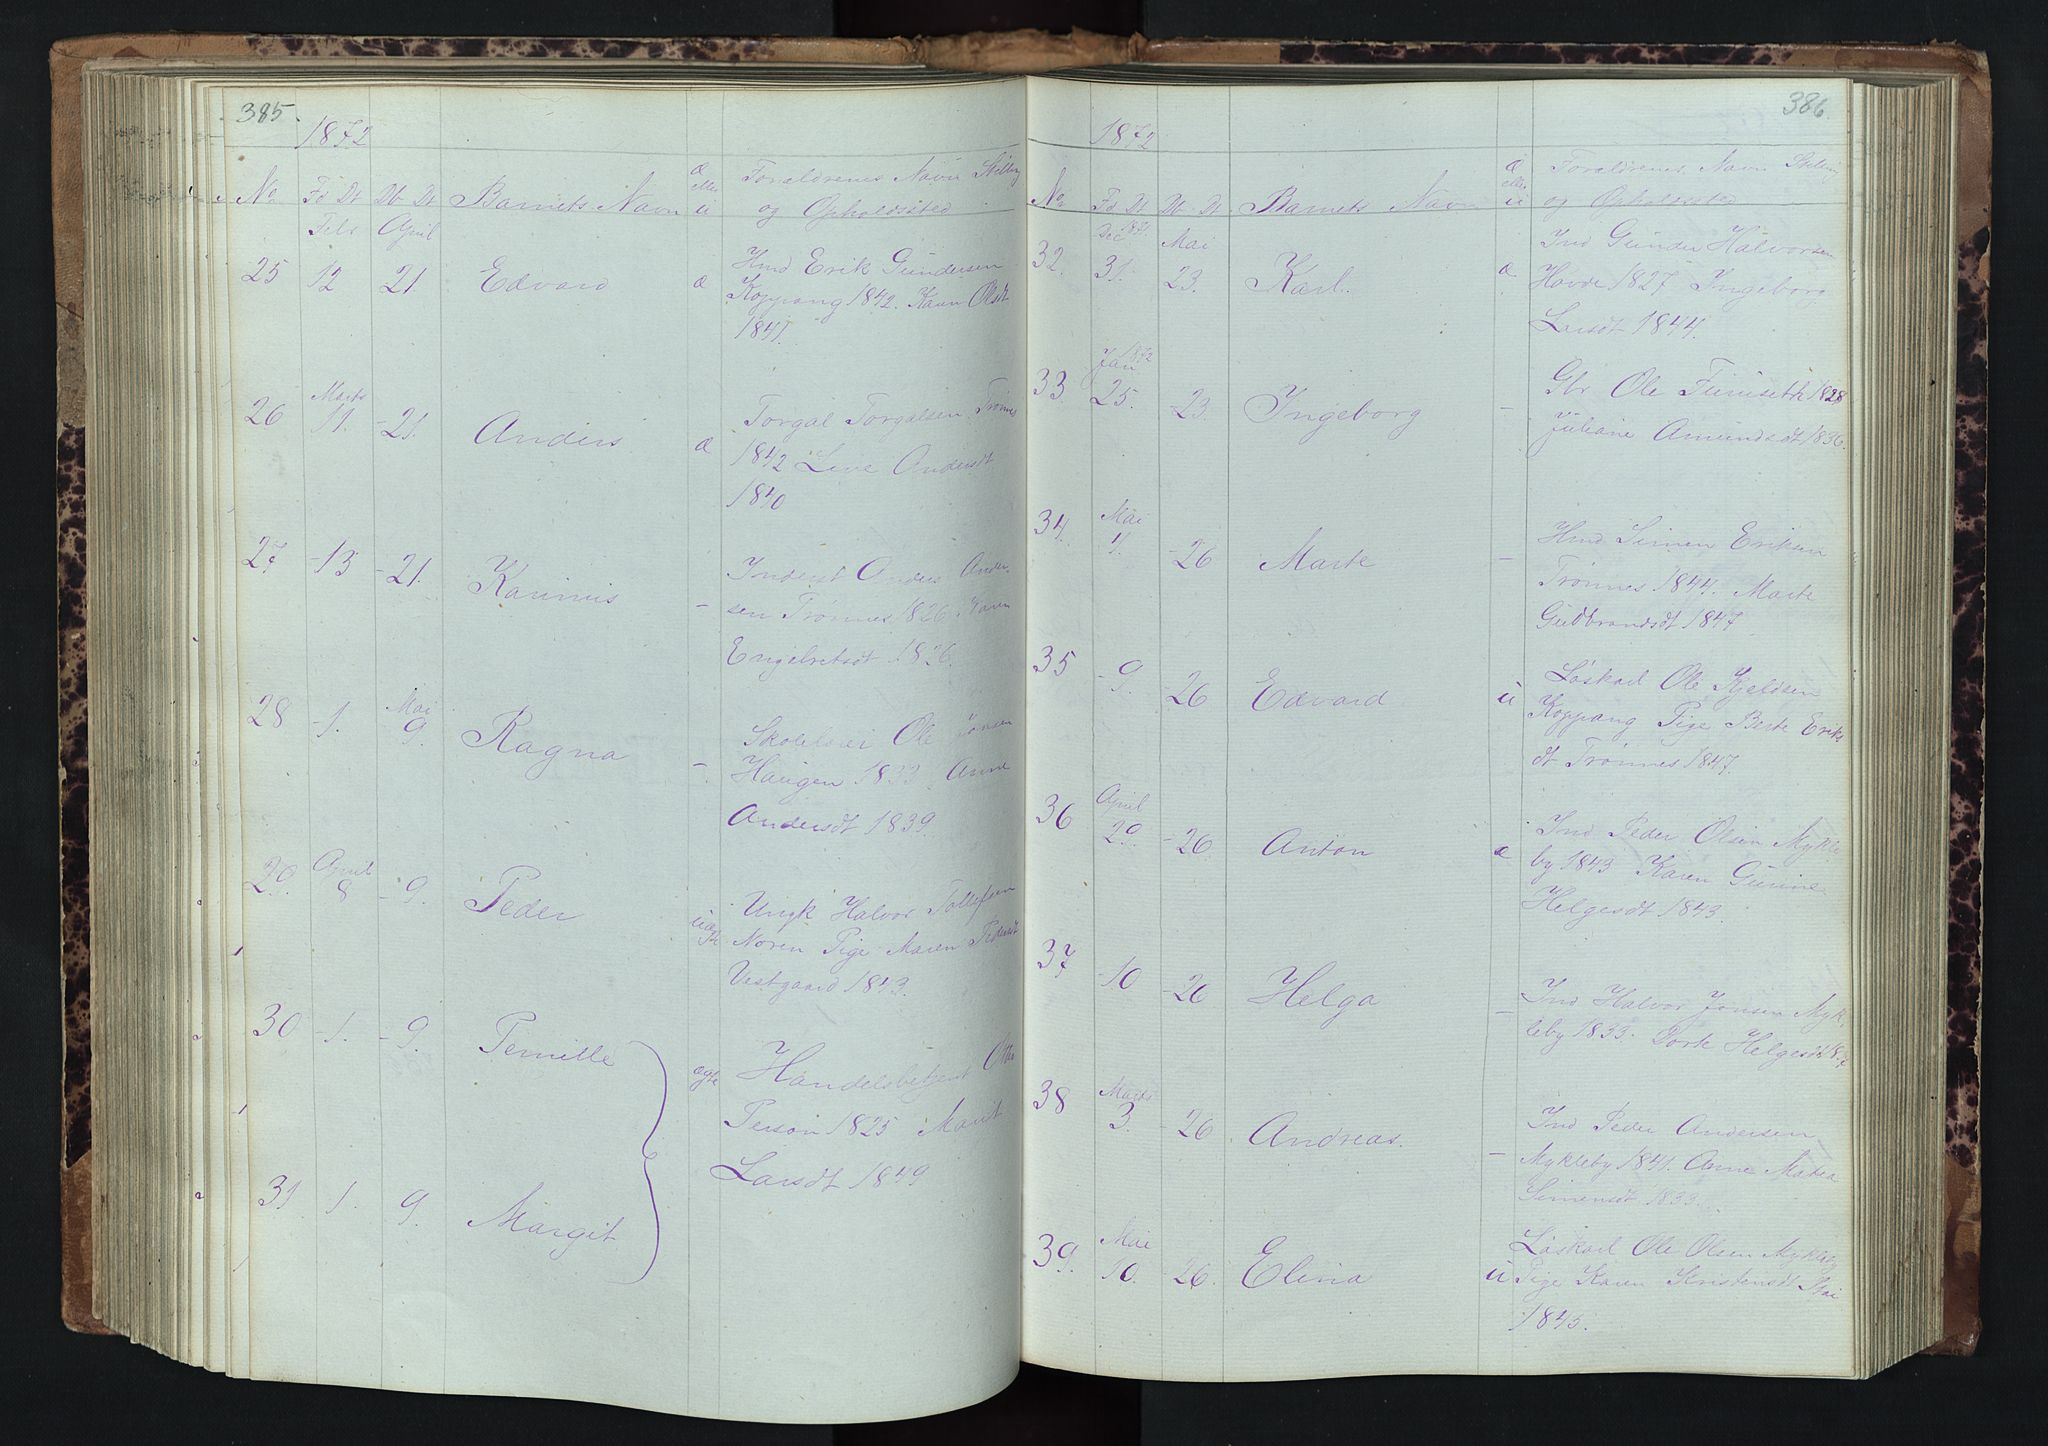 385.
1872
No
Fd Dt
Db Dt
Barnets Navn
æ
eller
u
Forældrenes Navn Stilling
og Opholdssted
Febr
April
25
12
21
Edvard
æ
Hmd Erik Gundersen
Koppang 1842. Karen Olsdt
1841.
26
Marts
11.
-21.
Anders
æ
Torgal Torgalsen Trønnes
1842 Live Andersdt
1840
27
-13
-21.
Karinius
-
Inderst Anders Ander-
sen Trønnes 1826 Karen
Engebretsdt 1826.
28
-1.
Mai
9.
Ragna
-
Ole Jonsen
Haugen 1833 Anne
Andersdt 1839.
29.
April
8
-9.
Peder
uæg
te
Ungk Halvor Tollefsen
Noren Pige Maren Pedersdt
Vestgaard 1843.
30
-1.
-9.
Pernille
ægte
Handelsbetjent Otto
Person 1825 Marit
Larsdt 1849
31
1.
9.
Margit
386.
1872
No
Fd Dt
Db Dt
Barnets Navn
æ
eller
u
Forældrenes Navn Stilling
og Opholdssted
32.
Dec 1871.
31.
Mai
23.
Karl.
æ
Ind Gunder Halvorsen
Hovde 1827 Ingeborg
Larsdt 1844.
33.
Jan 1872
25.
-23.
Ingeborg
-
Gbr Ole 1828
Juliane Amundsdt 1836.
34.
Mai
1.
-26
Marte
-
Hmd Simen Eriksen
Trønnes 1844. Marte
Gudbrandsdt 1847
35
-9.
-26
Edvard
u
Løskarl Ole Kjeldsen
Koppang Pige Berte Eriks
dt Trønnes 1847.
36
April
29.
-26
Anton
æ
Ind Peder Olsen Mykle
by 1843 Karen Gunine
Helgesdt 1843.
37
-10
-26
Helga
-
Ind Halvor Jonsen Myk
leby 1833. Dorte Helgesdt
38
Marts
3.
-26
Andreas.
-
Ind Peder Andersen
Mykleby 1841. Anne Matea
Simensdt 1833.
39.
Mai
10.
-26.
Elina
u
Løskarl Ole Olsen Mykleby
Pige Karen Kristensdt Stai
1845.